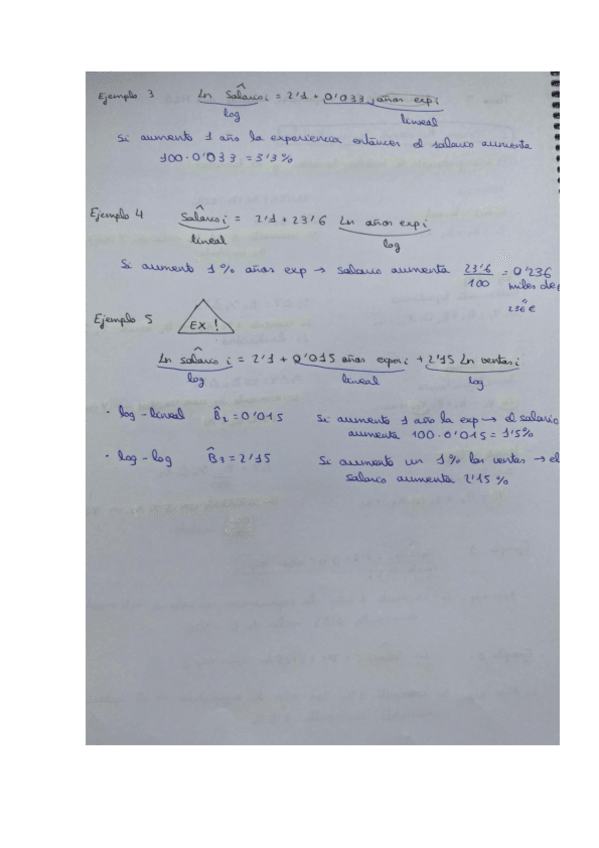 Ejemplo 3 Ln Salario^ i = 2'1 + 0'033 años exp i
log lineal
Si aumento 1 año la experiencia entonces el salario aumenta
100·0'033 = 3'3%
Ejemplo 4 Salario^ i = 2'1 + 23'6 Ln años exp i
lineal log
Si aumento 1% años exp → salario aumenta 23'6/100 = 0'236
miles de
236 €
Ejemplo 5 EX!
Ln salario^ i = 2'1 + 0'015 años exper i + 2'15 Ln ventas i
log lineal log
· log-lineal B̂2 = 0'015 Si aumento 1 año la exp → el salario
aumenta 100·0'015 = 1'5%
· log-log B̂3 = 2'15 Si aumento un 1% las ventas → el
salario aumenta 2'15%